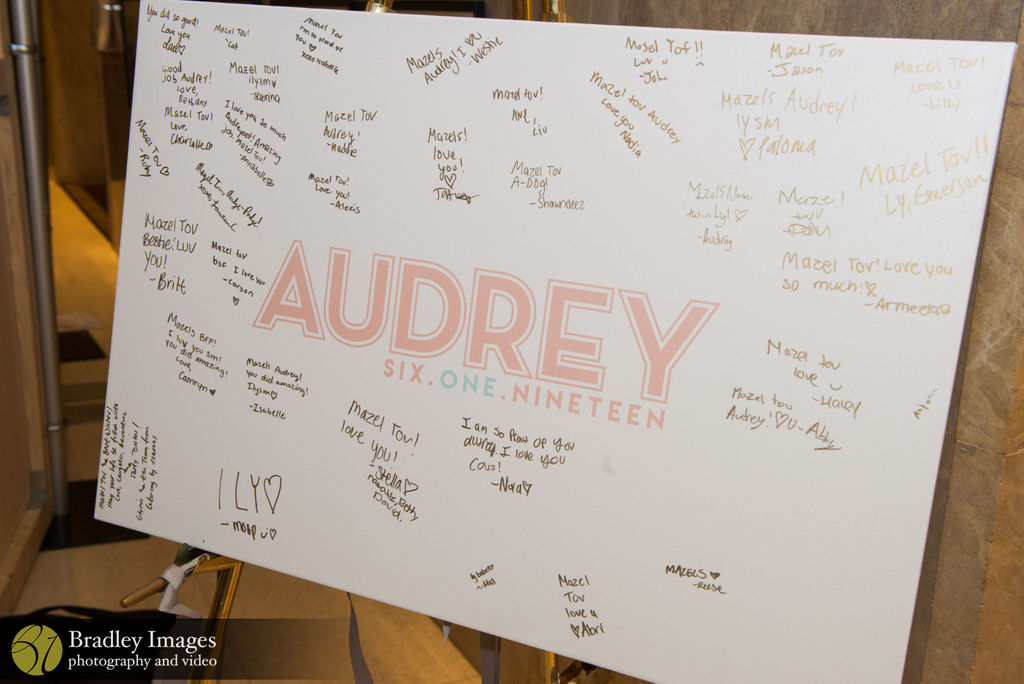 You did so good!
Love you
dad♡
Mazel Tov!
-Cat
Mazel Tov
I'm so proud of
You ♡
xoxo Isabelle
Mazels
Audrey! I ♡ U
-Westie
Mosel Tof!!
Luv u
-John
Mazel Tov
-Jason
Mazel Tov!
Love u
-Lilly
Good
job Audrey!
Love,
Bethany
Mazel Tov!
ilysm♡
Mazel Tov!
Love,
Charlotte♡
I love you so much
Amazing
job. Mazel Tov!
-Annabelle♡
Mazel Tov
Audrey!
-Maddie
Mazels!
love
you!
♡
Mazel tov!
Liv
Mazel tov Audrey
Love you
-Nadia
Mazels Audrey!
lysm
♡Paloma
Mazel Tov ♡
-Ruby
Mazel Tov!
Love you!
-Alexis
Mazel Tov
A-Dog!
-Shawndeez
twinly! ♡
-Audrey
Mazel
luv
Mazel Tov!!
Ly, Emerson
Mazel Tov
Bestie! LUV
YOU!
-Britt
Mazel tov
bsf I love you
-Carson
♡
Mazel Tov! Love you
so much!
AUDREY
SIX.ONE.NINETEEN
Mazels BFF!
I luv you sm!
you did amazing!
Love,
Camryn♥
Mazels Audrey!
You did amazing!
Ilysm♡
-Isabelle
Mazel tov
love u
-Haley
Mazel tov
Audrey! ♡U- Abby
Mazel Tov!
love you!
-Stella♡
Natalie, Betty
David.
I am so Prow of you
I love you
Cous!
-Nola♡
I LY♡
Mazel
Tov
love u
♡Abri
MAZELS ♥
-Reese
Bradley Images
photography and video